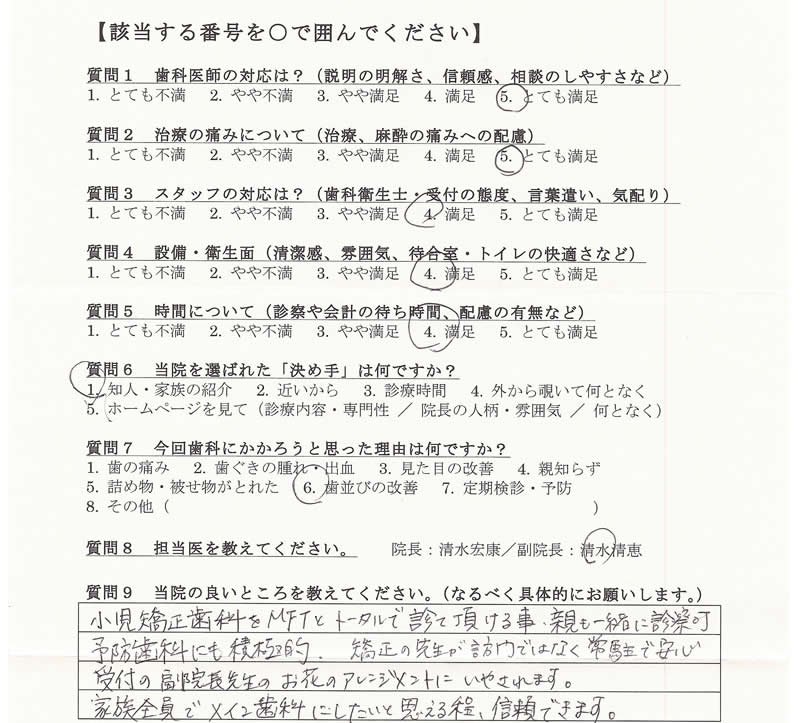 【該当する番号を〇で囲んでください】
質問1 歯科医師の対応は？（説明の明解さ、信頼感、相談のしやすさなど）
1. とても不満 2. やや不満 3. やや満足 4. 満足 5. とても満足
質問2 治療の痛みについて（治療、麻酔の痛みへの配慮）
1. とても不満 2. やや不満 3. やや満足 4. 満足 5. とても満足
質問3 スタッフの対応は？（歯科衛生士・受付の態度、言葉遣い、気配り）
1. とても不満 2. やや不満 3. やや満足 4. 満足 5. とても満足
質問4 設備・衛生面（清潔感、雰囲気、待合室・トイレの快適さなど）
1. とても不満 2. やや不満 3. やや満足 4. 満足 5. とても満足
質問5 時間について（診察や会計の待ち時間、配慮の有無など）
1. とても不満 2. やや不満 3. やや満足 4. 満足 5. とても満足
質問6 当院を選ばれた「決め手」は何ですか？
1. 知人・家族の紹介 2. 近いから 3. 診療時間 4. 外から覗いて何となく
5. ホームページを見て（診療内容・専門性 ／ 院長の人柄・雰囲気 ／ 何となく）
質問7 今回歯科にかかろうと思った理由は何ですか？
1. 歯の痛み 2. 歯ぐきの腫れ・出血 3. 見た目の改善 4. 親知らず
5. 詰め物・被せ物がとれた 6. 歯並びの改善 7. 定期検診・予防
8. その他（ ）
質問8 担当医を教えてください。 院長：清水宏康／副院長：清水清恵
質問9 当院の良いところを教えてください。（なるべく具体的にお願いします。）
小児矯正歯科をMFTとトータルで診て頂ける事・親も一緒に診察可
予防歯科にも積極的. 矯正の先生が訪門ではなく常駐で安心
受付の副院長先生のお花のアレンジメントにいやされます。
家族全員でメイン歯科にしたいと思える程、信頼できます。